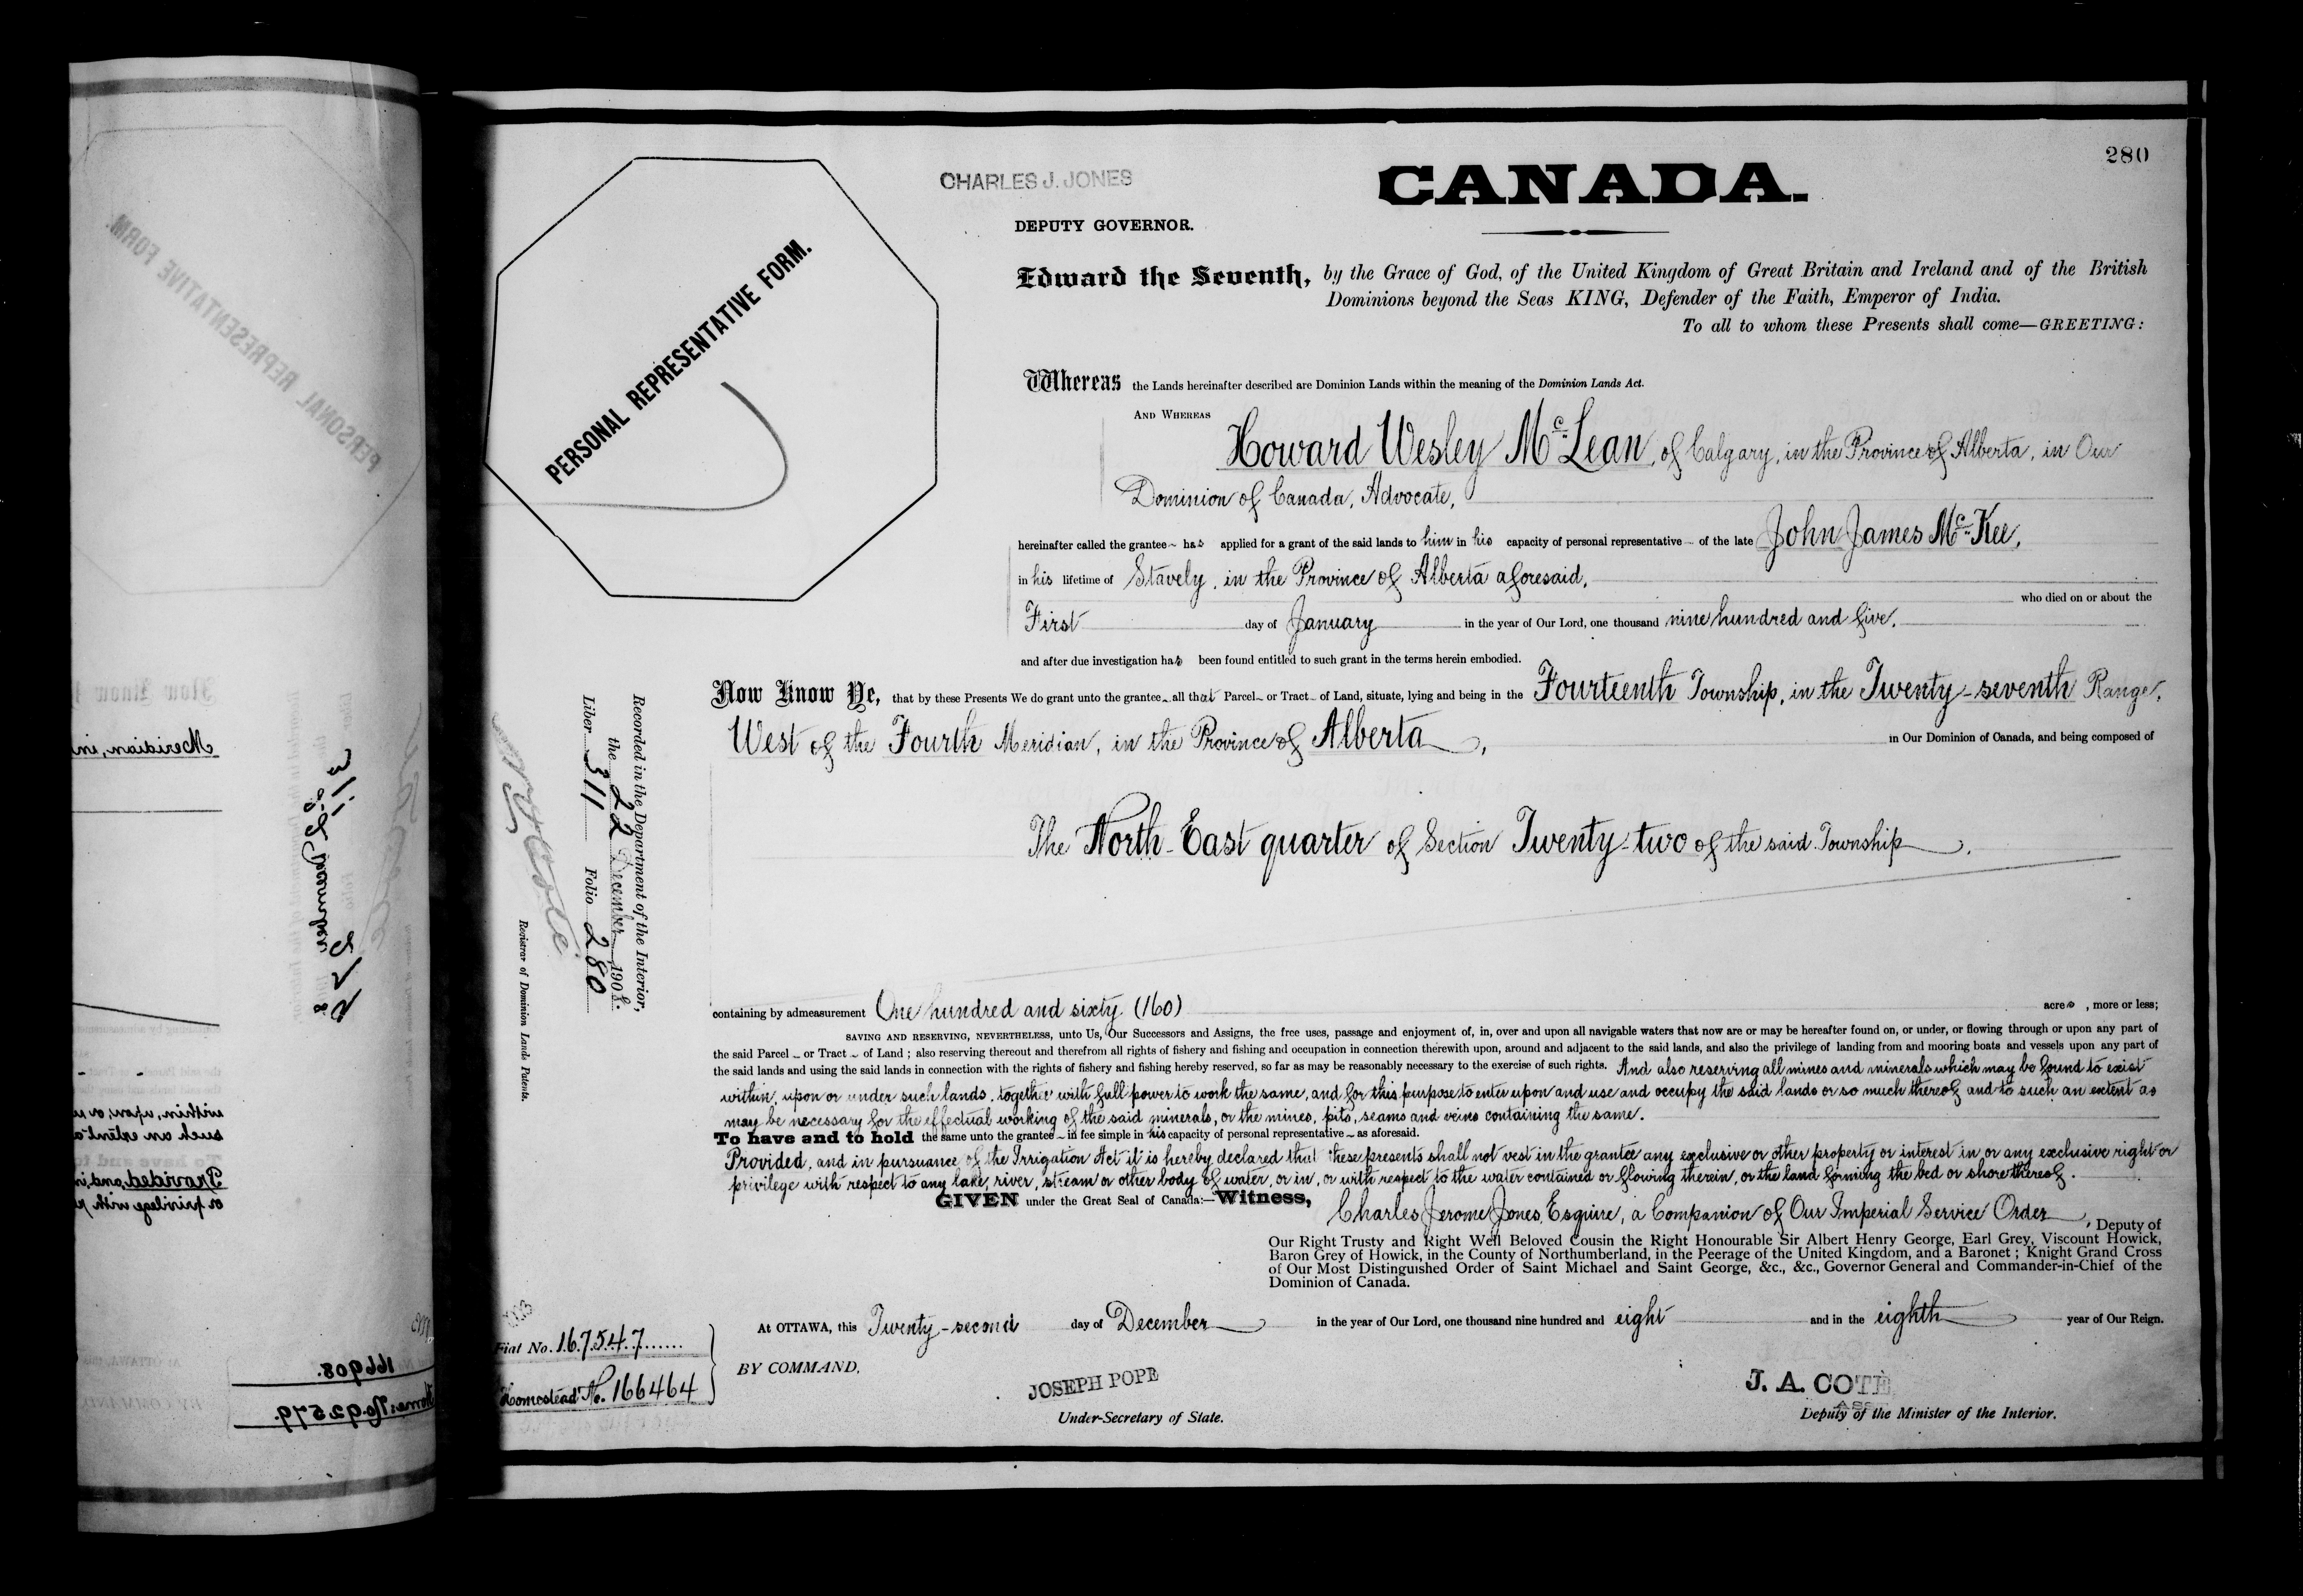 280
CHARLES J. JONES
CANADA.
DEPUTY GOVERNOR.
PERSONAL REPRESENTATIVE FORM.
Edward the Seventh, by the Grace of God, of the United Kingdom of Great Britain and Ireland and of the British
Dominions beyond the Seas KING, Defender of the Faith, Emperor of India.
To all to whom these Presents shall come—GREETING:
Whereas the Lands hereinafter described are Dominion Lands within the meaning of the Dominion Lands Act.
AND WHEREAS
Howard Wesley McLean, of Calgary, in the Province of Alberta, in Our
Dominion of Canada, Advocate,
hereinafter called the grantee has applied for a grant of the said lands to him in his capacity of personal representative of the late John James McKee,
in his lifetime of Stavely, in the Province of Alberta aforesaid,
who died on or about the
First day of January in the year of Our Lord, one thousand nine hundred and five.
and after due investigation has been found entitled to such grant in the terms herein embodied.
Now Know Ye, that by these Presents We do grant unto the grantee all that Parcel or Tract of Land, situate, lying and being in the Fourteenth Township, in the Twenty-seventh Range,
West of the Fourth Meridian, in the Province of Alberta, in Our Dominion of Canada, and being composed of
The North-East quarter of Section Twenty-two of the said Township.
Recorded in the Department of the Interior,
the 22 December 1908.
Liber 311 Folio 280
Registrar of Dominion Lands Patents.
containing by admeasurement One hundred and sixty (160) acres, more or less;
SAVING AND RESERVING, NEVERTHELESS, unto Us, Our Successors and Assigns, the free uses, passage and enjoyment of, in, over and upon all navigable waters that now are or may be hereafter found on, or under, or flowing through or upon any part of
the said Parcel or Tract of Land; also reserving thereout and therefrom all rights of fishery and fishing and occupation in connection therewith upon, around and adjacent to the said lands, and also the privilege of landing from and mooring boats and vessels upon any part of
the said lands and using the said lands in connection with the rights of fishery and fishing hereby reserved, so far as may be reasonably necessary to the exercise of such rights. And also reserving all mines and minerals which may be found to exist
within, upon or under such lands, together with full power to work the same, and for this purpose to enter upon and use and occupy the said lands or so much thereof and to such an extent as
may be necessary for the effectual working of the said minerals, or the mines, pits, seams and veins containing the same.
To have and to hold the same unto the grantee in fee simple in his capacity of personal representative as aforesaid.
Provided, and in pursuance of the Irrigation Act it is hereby declared that these presents shall not vest in the grantee any exclusive or other property or interest in, or any exclusive right or
privilege with respect to any lake, river, stream or other body of water, or in, or with respect to the water contained or flowing therein, or the land forming the bed or shore thereof.
GIVEN under the Great Seal of Canada:—Witness, Charles Jerome Jones, Esquire, a Companion of Our Imperial Service Order, Deputy of
Our Right Trusty and Right Well Beloved Cousin the Right Honourable Sir Albert Henry George, Earl Grey, Viscount Howick,
Baron Grey of Howick, in the County of Northumberland, in the Peerage of the United Kingdom, and a Baronet; Knight Grand Cross
of Our Most Distinguished Order of Saint Michael and Saint George, &c., &c., Governor General and Commander-in-Chief of the
Dominion of Canada.
At OTTAWA, this Twenty-second day of December in the year of Our Lord, one thousand nine hundred and eight and in the eighth year of Our Reign.
Fiat No. 167547
Homestead No. 166464
BY COMMAND,
JOSEPH POPE
Under-Secretary of State.
J. A. COTÉ
Deputy of the Minister of the Interior.